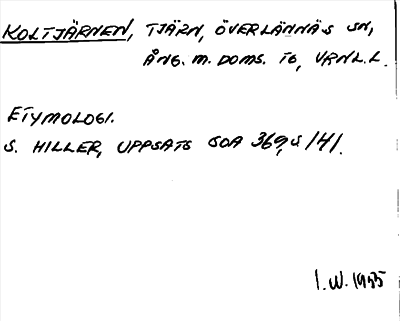 KOLTJÄRNEN, TJÄRN, ÖVERLÄNNÄS SN,
ÅNG. M. DOMS. TG, VRNL.L.
ETYMOLOGI.
S. HILLER, UPPSATS SOA 369, S 141.
I.W. 1955